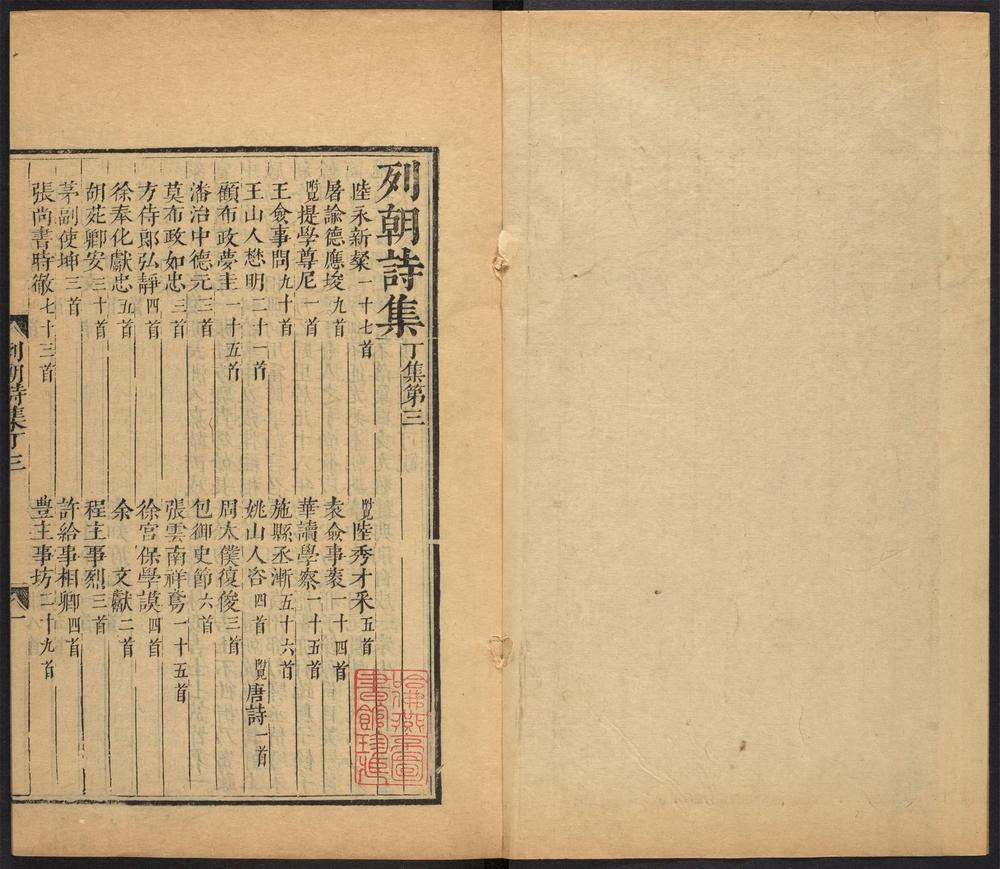 列朝詩集 丁集第三
陸永新粲 一十七首
附見陸秀才采 五首
屠諭德應埈 九首
袁僉事袠 一十四首
附見提學尊尼 一首
華讀學察 一十五首
王僉事問 九十首
施縣丞漸 五十六首
王山人懋明 二十一首
姚山人咨 四首 附見唐詩 一首
顧布政夢圭 一十五首
周太僕復俊 三首
潘治中德元 三首
包御史節 六首
莫布政如忠 三首
張雲南祥鳶 一十五首
方侍郎弘靜 四首
徐宮保學謨 四首
徐奉化獻忠 五首
余文獻 二首
胡苑卿安 三十首
程主事烈 三首
茅副使坤 三首
許給事相卿 四首
張尚書時徹 七十三首
豊主事坊 二十九首
列朝詩集丁三
一
哈佛燕京圖書館珍藏